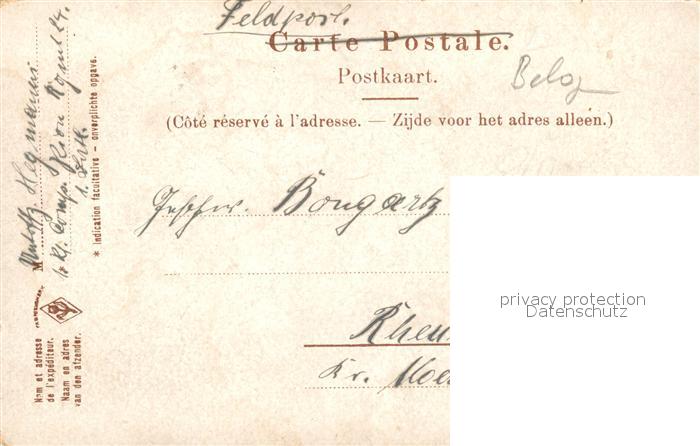 Feldpost.
Carte Postale.
Postkaart.
Belg
(Côté réservé à l'adresse. — Zijde voor het adres alleen.)
Geschw. Bongartz
Rheu
Kr. Moe
privacy protection
Datenschutz
M
Hegmanns
Komp. Pion. Regmt 24.
* Indication facultative – onverplichte opgave.
Nom et adresse
de l'expéditeur.
Naam en adres
van den afzender.